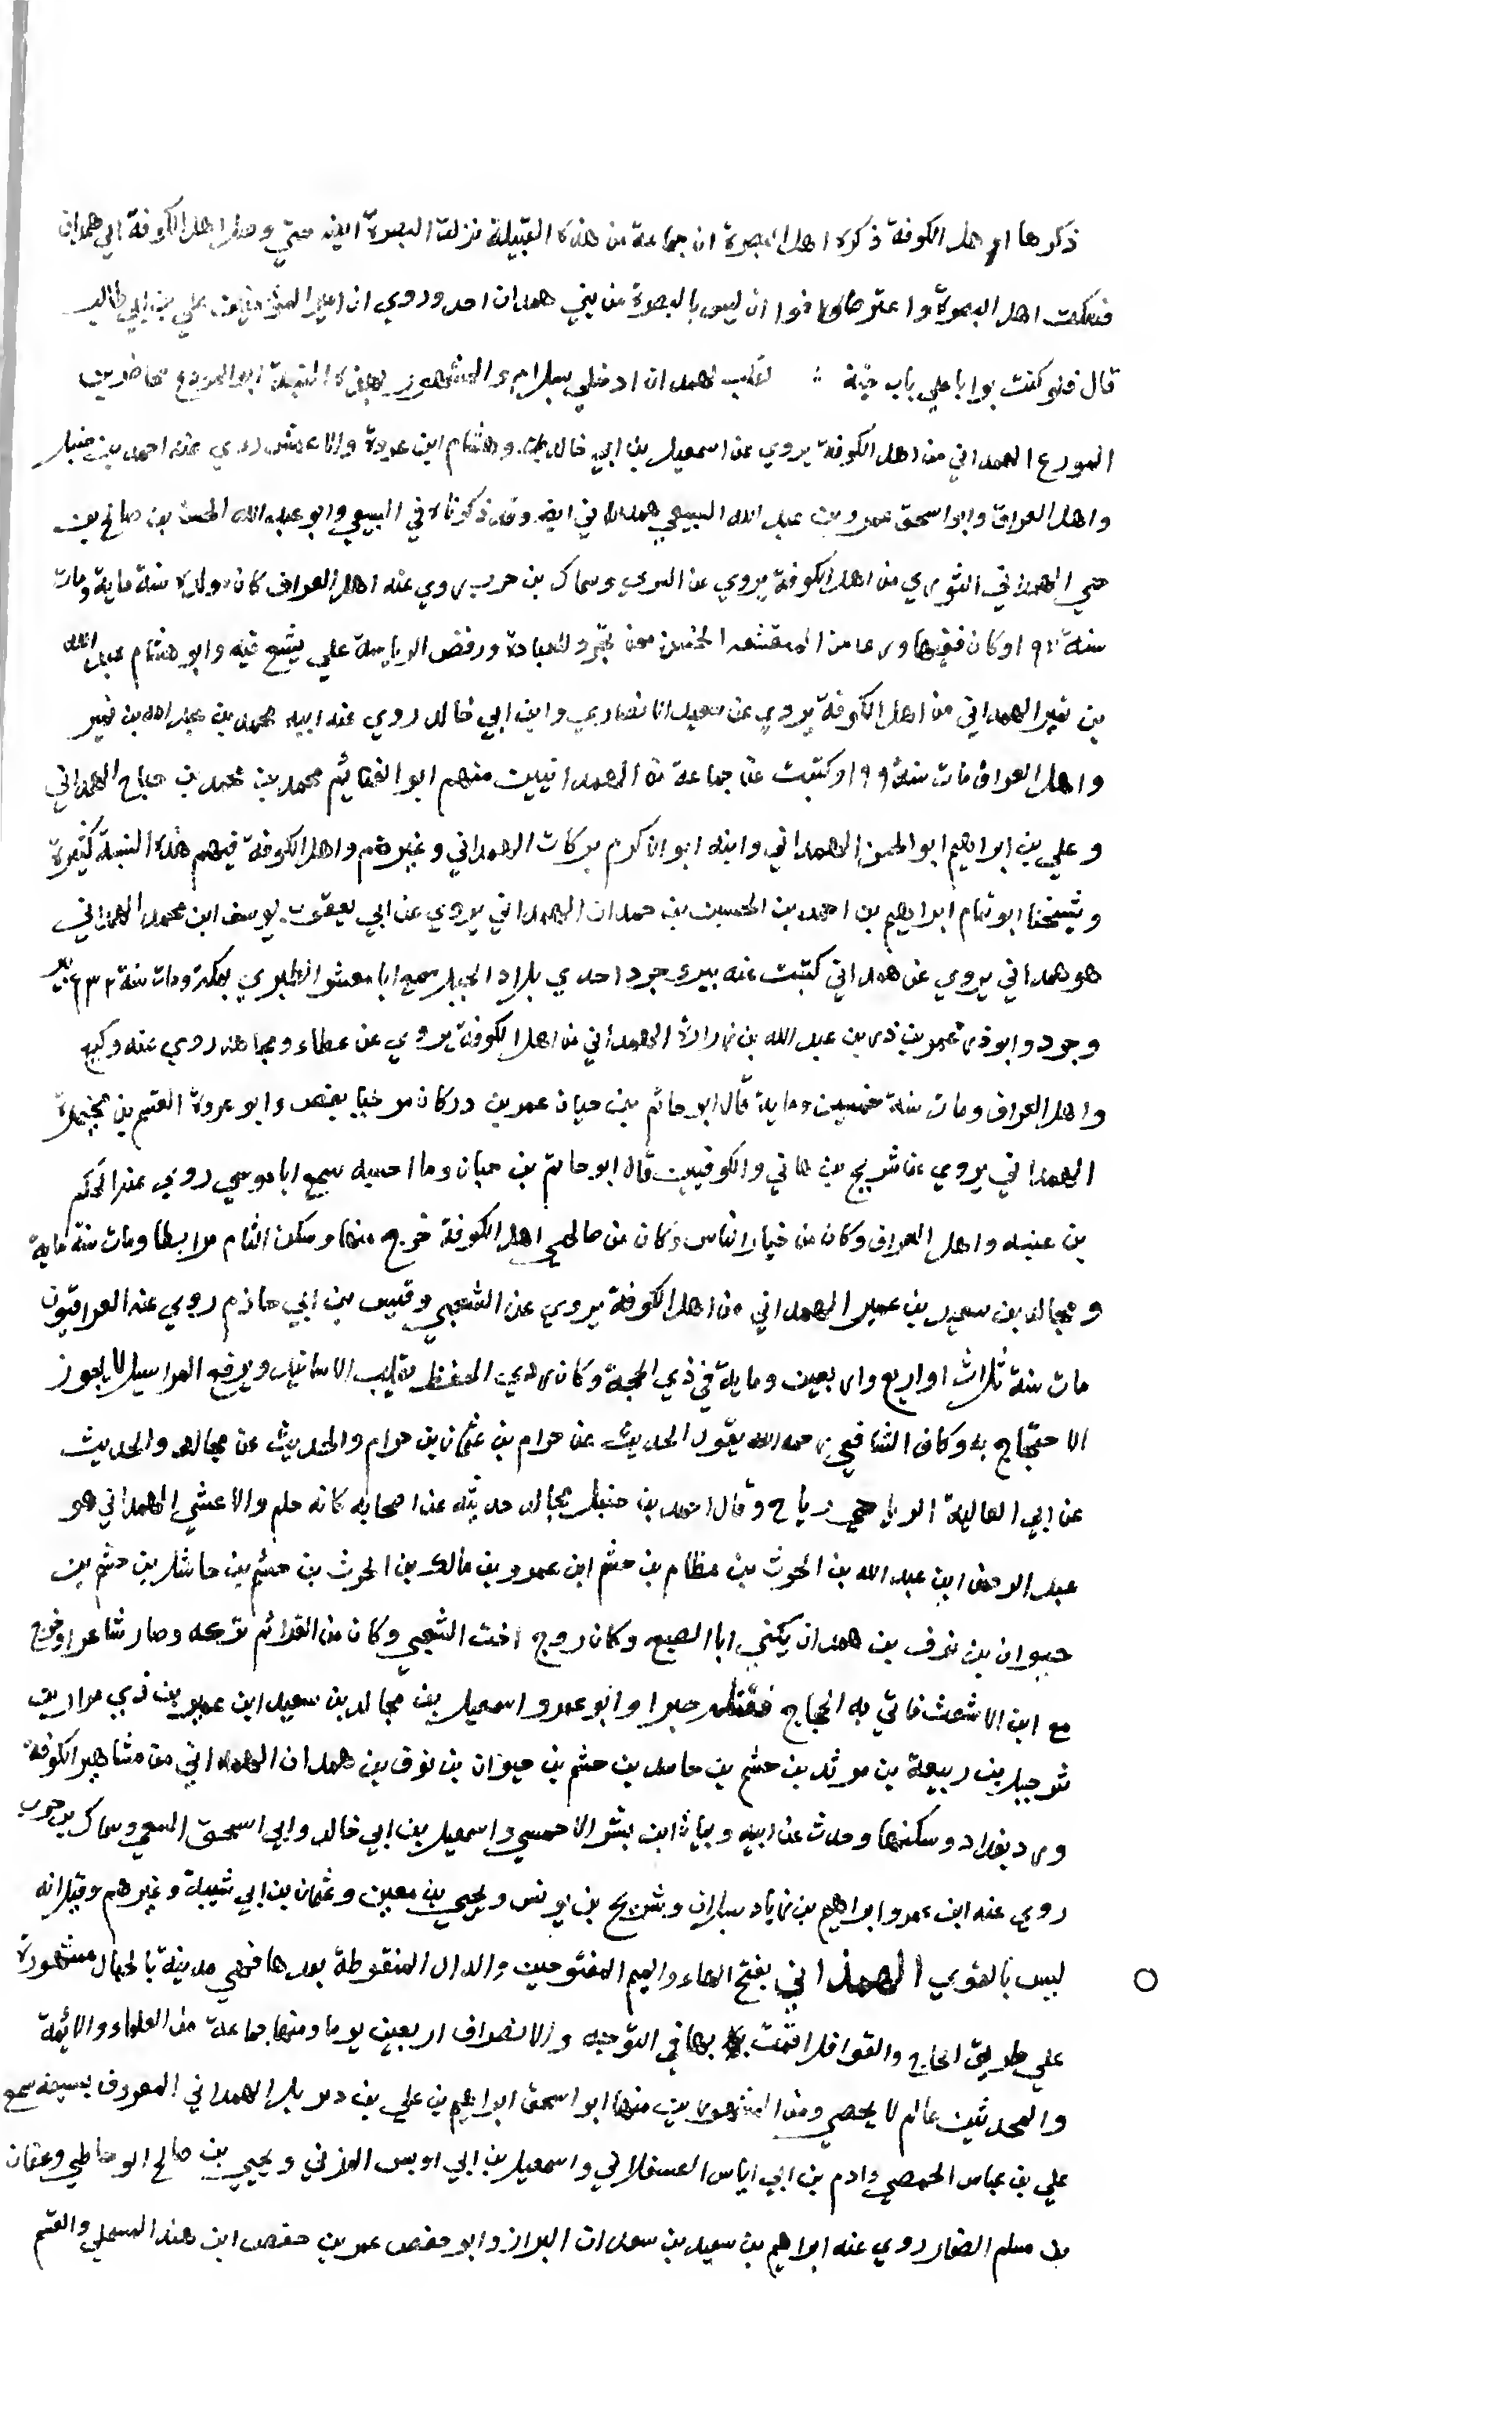 ذكرها اهل الكوفة ذكره اهل البصرة ان جماعة من هذه القبيلة نزلت البصرة ايضا حتي وصل اهل الكوفة الي همدان
فسكت اهل البصرة واعترضوا ان ليس بالبصرة من بني همدان احد وروي ان امير المؤمنين علي بن ابي طالب
قال فلو كنت بوابا علي باب جنة ؛ لقلت لهمدان ادخلي بسلام والمشهور بهذه النسبة ابو المورع محاضر بن
المورع الهمداني من اهل الكوفة يروي عن اسمعيل بن ابي خالد وهشام ابن عروة والاعمش روي عنه احمد بن حنبل
واهل العراق وابو اسحق عمرو بن عبد الله السبيعي همداني ايضا وقد ذكرناه في السبيعي وابو عبد الله الحسن بن صالح بن
حي الهمداني الثوري من اهل الكوفة يروي عن السدي وسماك بن حرب روي عنه اهل العراق كان مولده سنة ماية ومات
سنة وكان فقيها ورعا من المتقشفه الخشن ممن تجرد للعبادة ورفض الرياسة علي تشيع فيه وابو هشام عبد الله
بن نمير الهمداني من اهل الكوفة يروي عن سعيد الانصاري وابن ابي خالد روي عنه ابنه محمد بن عبد الله بن نمير
واهل العراق مات سنة ١٩٩ وكتبت عن جماعة من الهمدانيين منهم ابو الغنايم محمد بن محمد بن حجاج الهمداني
وعلي بن ابراهيم ابو الحسن الهمداني وابنه ابو الاكرم بركات الهمداني وغيرهم واهل الكوفة فيهم هذه النسبة كثيرة
وشيخنا ابو تمام ابراهيم بن احمد بن الحسين بن حمدان الهمداني يروي عن ابي يعقوب يوسف ابن محمد الهمداني
هو همداني يروي عن همداني كتبت عنه ببروجرد احدي بلاد الجبل سمع ابا معشر الطبري بمكة ومات سنة ببر
وجرد وابو ذر عمر بن ذر بن عبد الله بن زرارة الهمداني من اهل الكوفة يروي عن عطاء ومجاهد روي عنه وكيع
واهل العراق ومات سنة خمسين وماية قال ابو حاتم بن حبان عمر بن ذر كان مرجيا يقص وابو عروة القسم بن مخيمرة
الهمداني يروي عن شريح بن هاني والكوفيين قال ابو حاتم بن حبان وما احسبه سمع ابا موسي روي عنه الحكم
بن عتيبه واهل العراق وكان من خيار الناس وكان من صالحي اهل الكوفة خرج منها وسكن الشام مرابطا ومات سنة ماية
ومجالد بن سعيد بن عمير الهمداني من اهل الكوفة يروي عن الشعبي وقيس بن ابي حازم روي عنه العراقيون
مات سنة ثلاث او اربع واربعين وماية في ذي الحجة وكان ردي الحفظ يقلب الاسانيد ويرفع المراسيل لا يجوز
الاحتجاج به وكان الشافعي رحمه الله يقول الحديث عن حرام بن عثمان بن حرام والحديث عن مجالد والحديث
عن ابي العالية الرياحي رياح وقال احمد بن حنبل مجالد حديثه عن اصحابه كانه حلم والاعشي الهمداني هو
عبد الرحمن ابن عبد الله بن الحرث بن نظام بن جشم ابن عمرو بن مالك بن الحرث بن جشم بن حاشد بن جشم بن
حيوان بن نوف بن همدان يكني ابا المصبح وكان زوج اخت الشعبي وكان من القرا ثم تركه وصار شاعرا وخرج
مع ابن الاشعث فاتي به الحجاج فقتله صبرا وابو عمرو اسمعيل بن مجالد بن سعيد ابن عمير بن ذي مران بن
شرحبيل بن ربيعة بن مرثد بن جشم بن حاشد بن جشم بن حيوان بن نوف بن همدان الهمداني من مشاهير الكوفة
ورد بغداد وسكنها وحدث عن ابيه وبيان ابن بشر الاحمسي واسمعيل بن ابي خالد وابي اسحق السبيعي وسماك بن حرب
روي عنه ابن عمر وابراهيم بن زياد سبلان وشريح بن يونس ويحيي بن معين وعثمان بن ابي شيبة وغيرهم وقيل انه
ليس بالقوي الهمذاني بفتح الهاء والميم المفتوحين والدال المنقوطة بعدها فهي مدينة بالجبال مشهورة
علي طريق الحاج والقوافل اقمت بها في التوجه والانصراف اربعين يوما ومنها جماعة من العلماء والائمة
والمحدثين عالم لا يحصي ومن المشهورين منها ابو اسحق ابراهيم بن علي بن ديزيل الهمداني المعروف بسيفه سمع
علي بن عياس الحمصي وادم بن ابي اياس العسقلاني واسمعيل بن ابي اويس المزني ويحيي بن صالح الوحاطي وعفان
بن مسلم الصفار روي عنه ابراهيم بن سعيد بن سعدان البزاز وابو حفص عمر بن حفص ابن هند المسملي والقسم